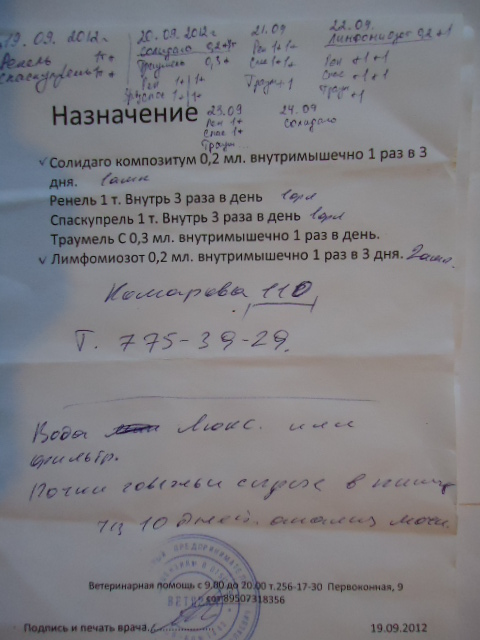 19.09.2012г. 20.09.2012г 21.09 22.09.
Ренель 1т+ Солидаго 0,2+ Рен 1+1+ Лимфомиозот 0,2+1
Спаскупрель 1т+ Траумель 0,3+ Спас 1+1+ Рен +1+1
Рен 1+1+ Траум+1 Спас +1+1
Спас 1+1+ Траум +1
23.09 24.09
Назначение Рен 1+ Солидаго
Спас 1+
Траум...
✓Солидаго композитум 0,2 мл. внутримышечно 1 раз в 3
дня. 1 амп
Ренель 1 т. Внутрь 3 раза в день
Спаскупрель 1 т. Внутрь 3 раза в день
Траумель С 0,3 мл. внутримышечно 1 раз в день.
✓ Лимфомиозот 0,2 мл. внутримышечно 1 раз в 3 дня. 2 амп.
Комарова 110
Т. 775-39-29.
Вода Люкс. или
фильтр.
Почки говяжьи сырые в пищу
чз 10 дней. анализ мочи
Ветеринарная помощь с 9.00 до 20.00 т.256-17-30 Первоконная, 9
сот89507318356
Подпись и печать врача.
19.09.2012